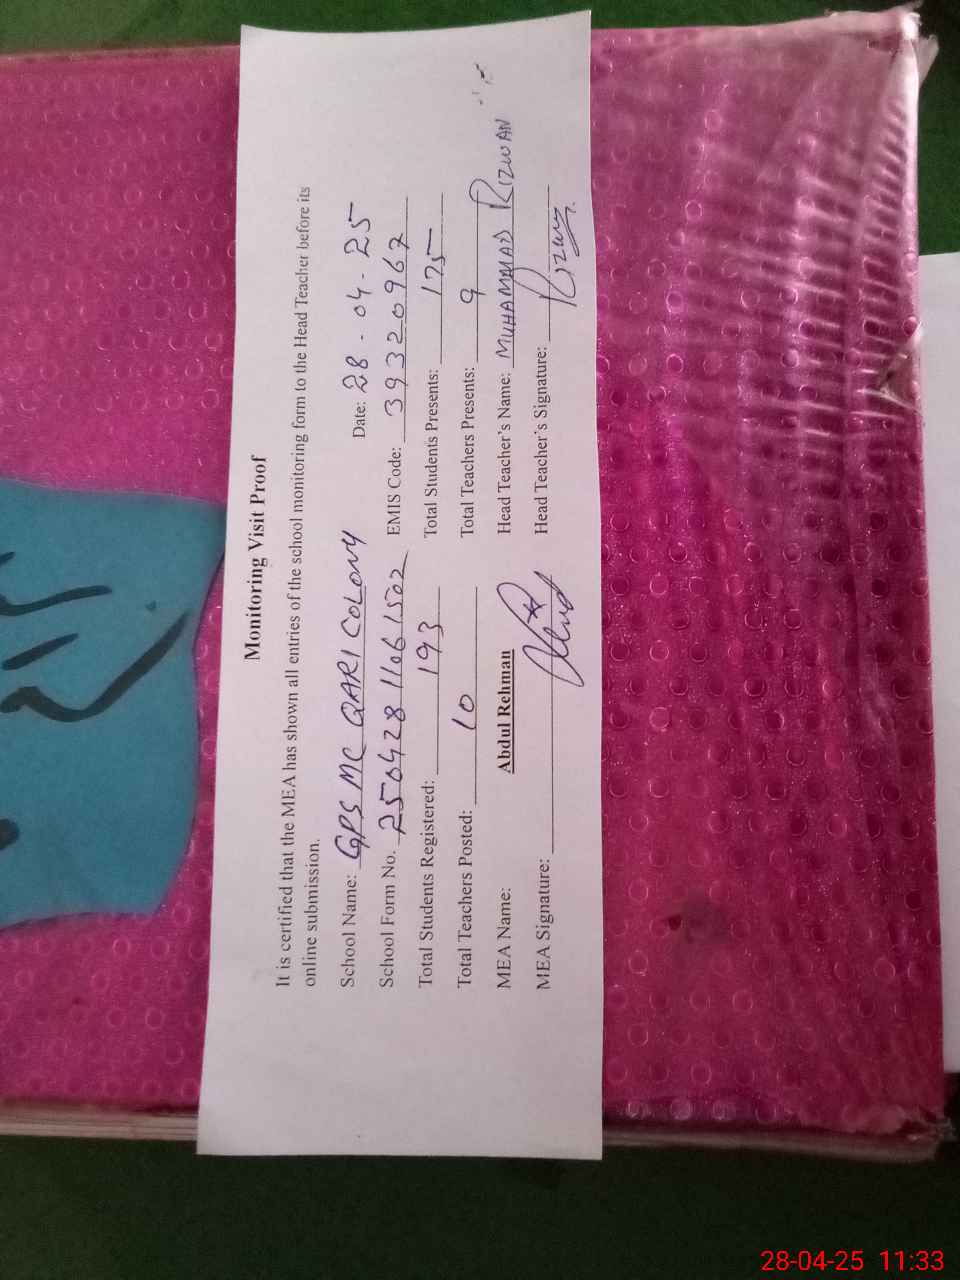 Monitoring Visit Proof
It is certified that the MEA has shown all entries of the school monitoring form to the Head Teacher before its
online submission.
School Name: GPS MC QARI COLONY Date: 28-04-25
School Form No. 250428 1106 1502 EMIS Code: 39320967
Total Students Registered: 193 Total Students Presents: 175
Total Teachers Posted: 10 Total Teachers Presents: 9
MEA Name: Abdul Rehman Head Teacher's Name: MUHAMMAD RIZWAN
MEA Signature: Head Teacher's Signature: Rizwan
28-04-25 11:33